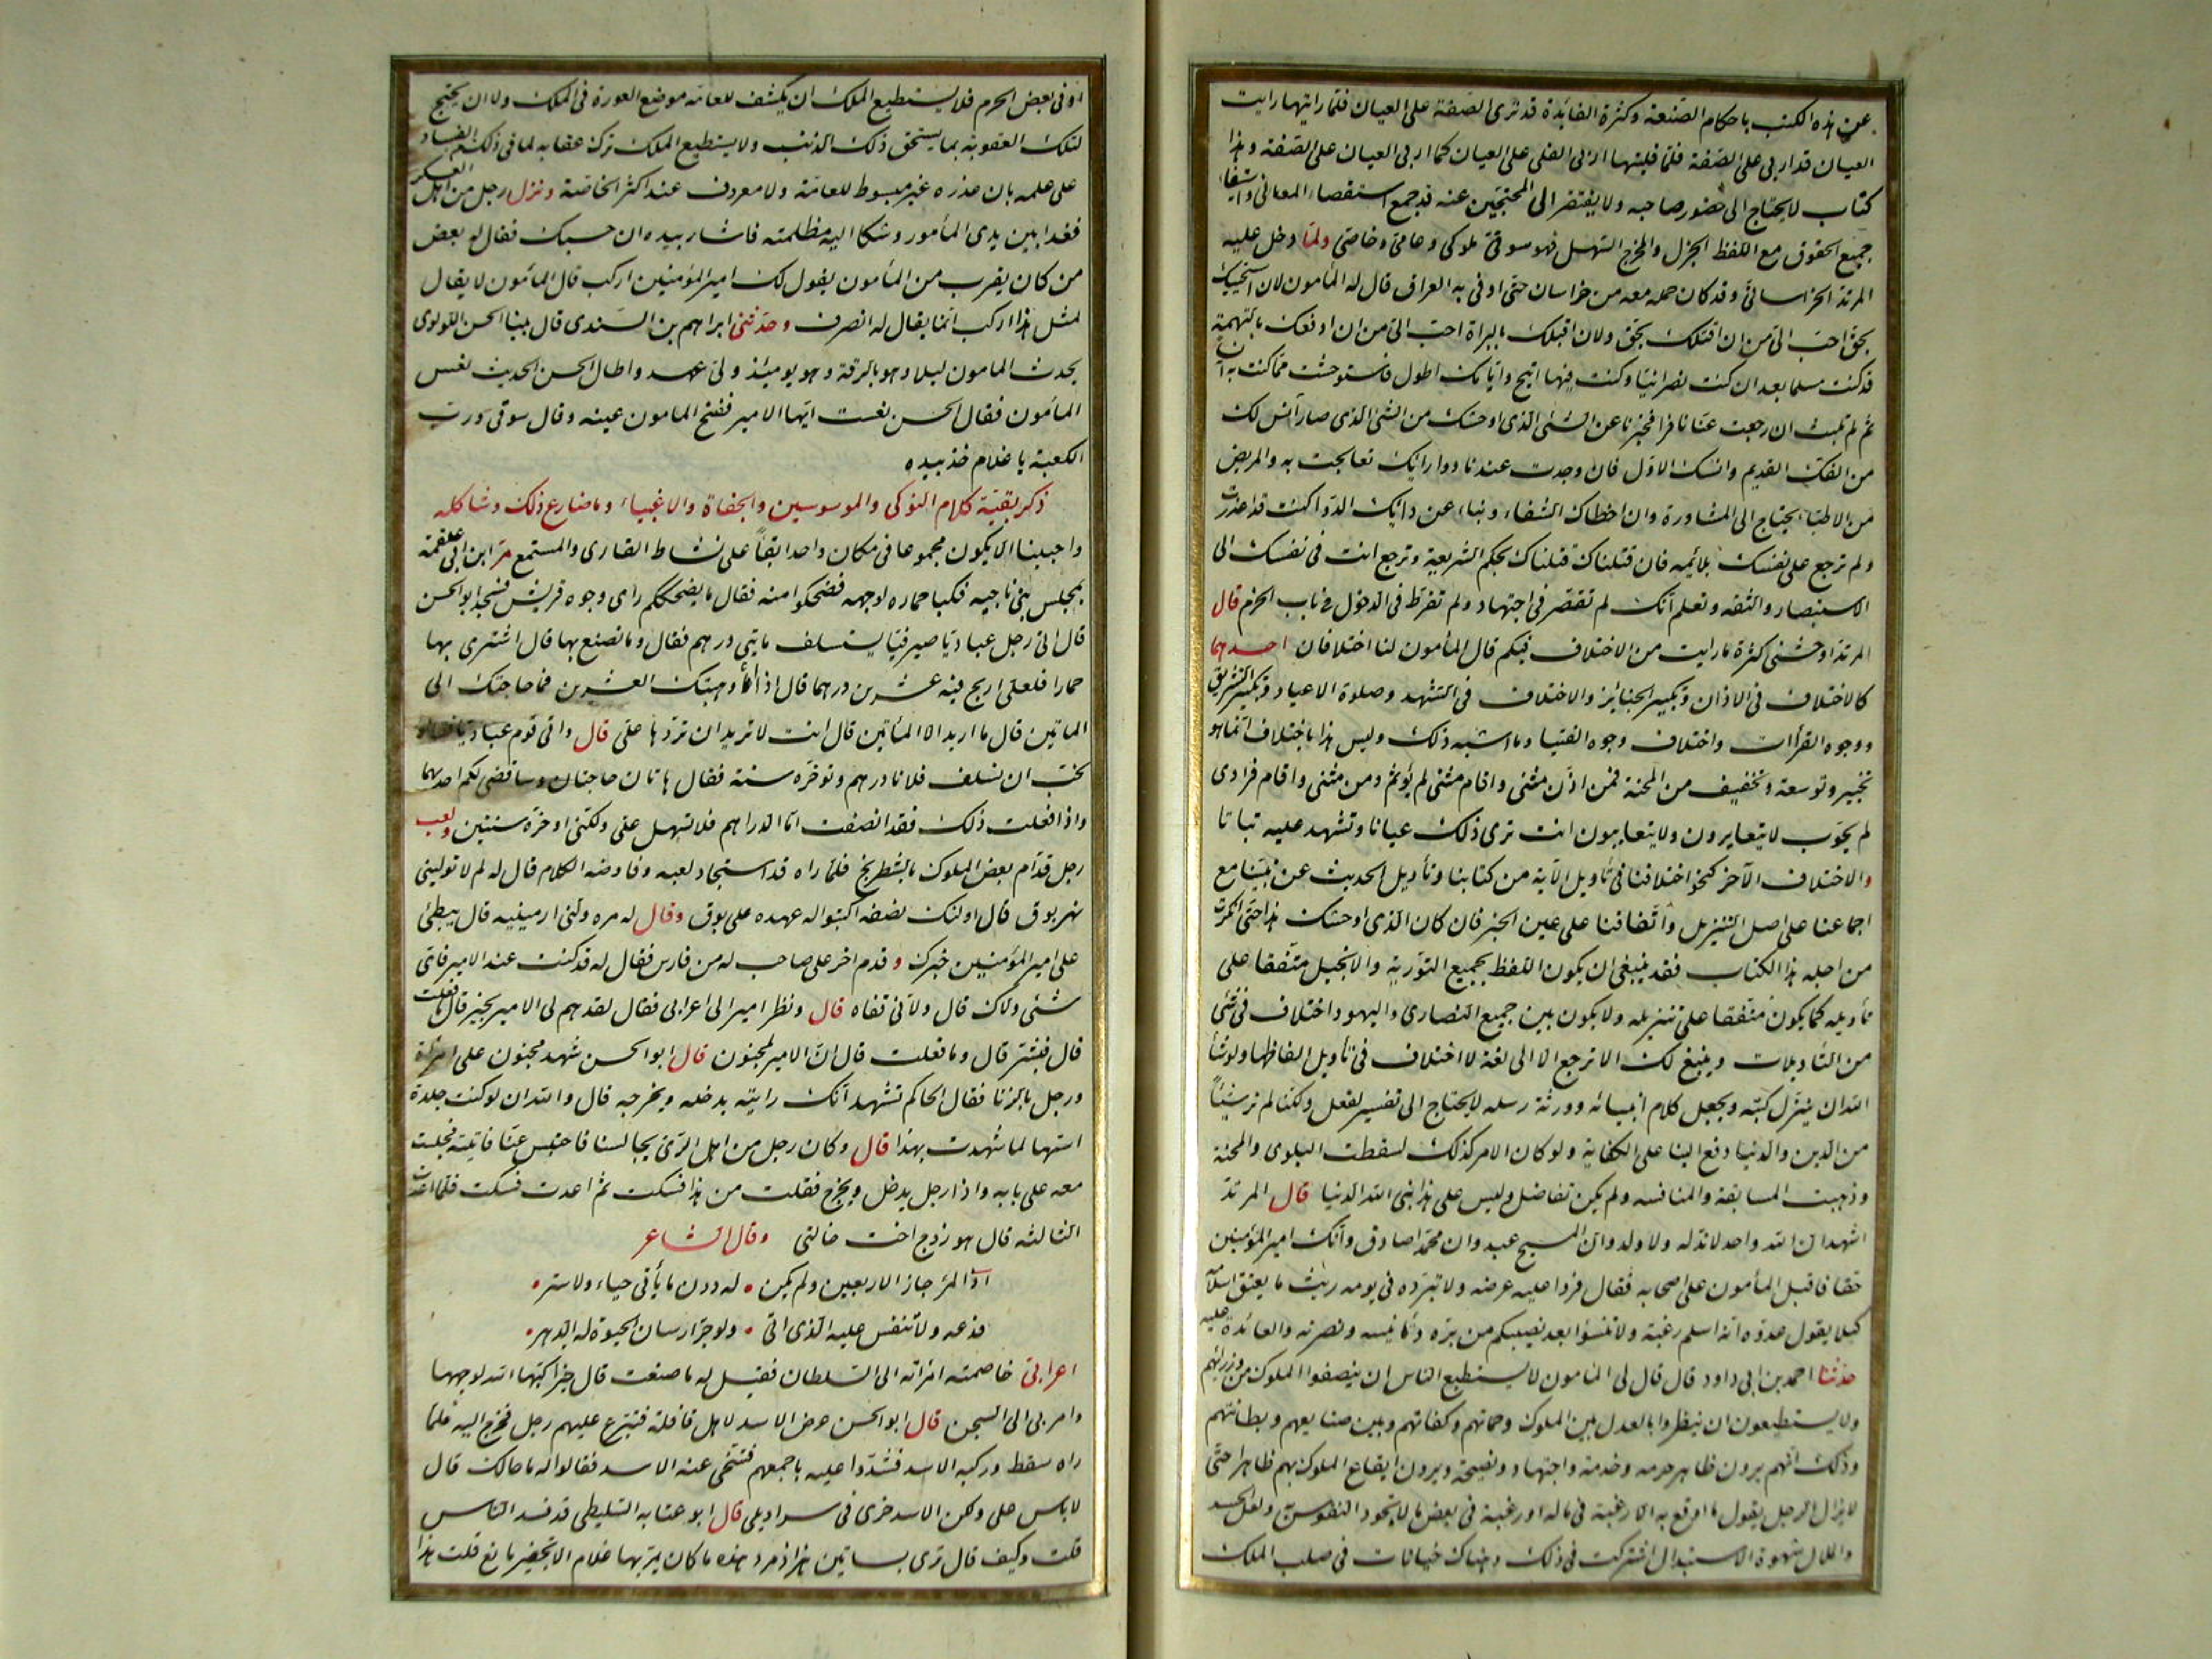 عن هذه الكتب باحكام الصنعة وكثرة الفائدة قد ترى الصفة على العيان فلما رايتها رايت
العيان قد اربى على الصفة فلما فليتها اربى الفلى على العيان كما اربى العيان على الصفة وهذا
كتاب لا يحتاج الى حضور صاحبه ولا يفتقر الى المحتجين عنه قد جمع استقصاء المعانى واستيفاء
جميع الحقوق مع اللفظ الجزل والمخرج السهل فهو سوقى ملوكى وعامى وخاصى ولما دخل عليه
المرتد الخراسانى وقد كان حمله معه من خراسان حتى اوفى به العراق قال له المأمون لان استحييك
بحق احب الى من ان اقتلك بحق ولان اقبلك بالبراة احب الى من ان ادفعك بالتهمة
قد كنت مسلما بعد ان كنت نصرانيا وكنت فيها اتيح وايامك اطول فاستوحشت مما كنت به
ثم لم تلبث ان رجعت عنا نافرا فخبرنا عن الشئ الذى اوحشك من الشئ الذى صار آنس لك
من الفك القديم وانسك الاول فان وجدت عندنا دوا رائك تعالجت به والمريض
من الاطبا يحتاج الى المشاورة وان اخطاك الشفاء ونبا عن دائك الدوا كنت قد اعذرت
ولم ترجع على نفسك بلائمه فان قتلناك قتلناك بحكم الشريعة وترجع انت فى نفسك الى
الاستبصار والثقه وتعلم انك لم تقصر فى اجتهاد ولم تفرط فى الدخول من باب الحزم قال
المرتد اوحشنى كثرة ما رايت من الاختلاف فيكم قال المأمون لنا اختلافان احدهما
كالاختلاف فى الاذان وتكبير الجنائز والاختلاف فى التشهد وصلوة الاعياد وتكبير التشريق
ووجوه القرأات واختلاف وجوه الفتيا وما اشبه ذلك وليس هذا باختلاف انما هو
تخيير وتوسعة وتخفيف من المحنة فمن اذن مثنى واقام مثنى لم يؤثم ومن مثنى واقام فرادى
لم يحوب لا يتعايرون ولا يتعايبون انت ترى ذلك عيانا وتشهد عليه تباتا
والاختلاف الآخر كنحو اختلافنا فى تأويل الآية من كتابنا وتأويل الحديث عن نبينا مع
اجماعنا على اصل التنزيل واتفاقنا على عين الخبر فان كان الذى اوحشك هذا حتى انكرت
من اجله هذا الكتاب فقد ينبغى ان يكون اللفظ بجميع التورية والانجيل متفقا على
تأويله كما يكون متفقا على تنزيله ولا يكون بين جميع النصارى واليهود اختلاف فى شئ
من التأويلات وينبغى لك الا ترجع الا الى لغة لا اختلاف فى تأويل الفاظها ولو شأ
الله ان ينزل كتبه ويجعل كلام انبيائه وورثة رسله لا يحتاج الى تفسير لفعل ولكنا لم نر شيئاً
من الدين والدنيا دفع الينا على الكفاية ولو كان الامر كذلك لسقطت البلوى والمحنة
وذهبت المسابقة والمنافسه ولم يكن تفاضل وليس على هذا بنى الله الدنيا قال المرتد
اشهد ان الله واحد لا ند له ولا ولد وان المسيح عبد وان محمدا صادق وانك امير المؤمنين
حقا فاقبل المأمون على اصحابه فقال فروا عليه عرضه ولا تبروه فى يومه ريث ما يعتق اسلامه
كيلا يقول عدوه انه اسلم رغبة ولا تنسوا بعد نصيبكم من بره وتأنيسه ونصرته والعائدة عليه
حدثنا احمد بن ابى داود قال قال لى المأمون لا يستطيع الناس ان ينصفوا الملوك من وزرائهم
ولا يستطيعون ان ينظروا بالعدل بين الملوك وحماتهم وكفاتهم وبين صنايعهم وبطانتهم
وذلك انهم يرون ظاهر حرمه وخدمة واجتهاد ونصيحة ويرون ايقاع الملوك بهم ظاهرا حتى
لا يزال الرجل يقول ما اوقع به الا رغبة فى ماله او رغبة فى بعض ما لا تجود النفوس ولعل الحسد
والملال وشهوة الاستبدال اشتركت فى ذلك وهناك خيانات فى صلب الملك
او فى بعض الحرم فلا يستطيع الملك ان يكشف للعامه موضع العورة فى الملك ولا ان يحتج
لتلك العقوبة بما يستحق ذلك الذنب ولا يستطيع الملك ترك عقابه لما فى ذلك من الفساد
على علمه بان عذره غير مبسوط للعامة ولا معروف عند اكثر الخاصة ونزل رجل من اهل العسكر
فغدا بين يدى المأمور وشكا اليه مظلمته فاشار بيده ان حسبك فقال له بعض
من كان يقرب من المأمون يقول لك امير المؤمنين اركب قال المأمون لا يقال
لمثل هذا اركب انما يقال له انصرف وحدثنى ابراهيم بن السندى قال بينا الحسن اللولوى
يحدث المامون ليلا وهو بالرقة وهو يومئذ ولى عهد واطال الحسن الحديث نعس
المأمون فقال الحسن نعست ايها الامير ففتح المامون عينه وقال سوقى ورب
الكعبة يا غلام خذ بيده
ذكر بقية كلام النوكى والموسوسين والجفاة والاغبياء وما ضارع ذلك وشاكله
واحببنا الا يكون مجموعا فى مكان واحد ابقاً على نشاط القارى والمستمع مر ابن ابى علقمة
بمجلس بنى ناجيه فكبا حماره لوجهه فضحكوا منه فقال ما يضحككم راى وجوه قريش فسجد ابو الحسن
قال اتى رجل عباديا صيرفيا يستسلف مايتى درهم فقال وما تصنع بها قال اشترى بها
حمارا فلعلى اربح فيه عشرين درهما قال اذا انا وهبتك العشرين فما حاجتك الى
المايتين قال ما اريد الا المأتين قال انت لا تريد ان تردها على قال واتى قوم عباديا
نحب ان تسلف فلانا درهم وتوخره سنة فقال هاتان حاجتان وساقضى لكم احديهما
واذا فعلت ذلك فقد انصفت اما الدراهم فلا تسهل على ولكنى اوخره سنتين ولعب
رجل قدام بعض الملوك بالشطرنج فلما راه قد استجاد لعبه وفاوضه الكلام قال له لم لا تولينى
نهر بوق قال اوليك نصفه اكتبوا له عهده على بوق وقال له مره ولنى ارمينيه قال يبطئ
على امير المؤمنين خبرك وقدم اخر على صاحب له من فارس فقال له قد كنت عند الامير فاى
شئى ولاك قال ولانى قفاه قال ونظر امير الى اعرابى فقال لقد هم لى الامير بخير قال ما فعلت
قال فبشر قال وما فعلت قال ان الامير لمجنون قال ابو الحسن شهد مجنون على امراة
ورجل بالزنا فقال الحاكم تشهد انك رايته يدخله ويخرجه قال والله ان لو كنت جلدة
استها لما شهدت بهذا قال وكان رجل من اهل الرى يجالسنا فاحتبس عنا فاتيته فجلست
معه على بابه واذا رجل يدخل ويخرج فقلت من هذا فسكت ثم اعدت فسكت فلما اعدت
الثالثه قال هو زوج اخت خالتى وقال الشاعر
اذا المرُ جاز الاربعين ولم يكن • له دون ما يأتى حياء ولا ستر •
فدعه ولا تنفس عليه الذى اتى • ولو جر ارسان الحيوة له الدهر •
اعرابى خاصمته امراته الى السلطان فقيل له ما صنعت قال خيرا كبها الله لوجهها
وامر بى الى السجن قال ابو الحسن عرض الاسد لاهل قافلة فتبرع عليهم رجل فخرج اليه فلما
راه سقط وركبه الاسد فشدوا عليه باجمعهم فتنحى عنه الاسد فقالوا له ما حالك قال
لا باس على ولكن الاسد خرى فى سراويلى قال ابو عتابه السليطى قد فسد الناس
قلت وكيف قال ترى بساتين هزارمرد هذه ما كان يمر بها غلام الا بخفير ما نع قلت هذا